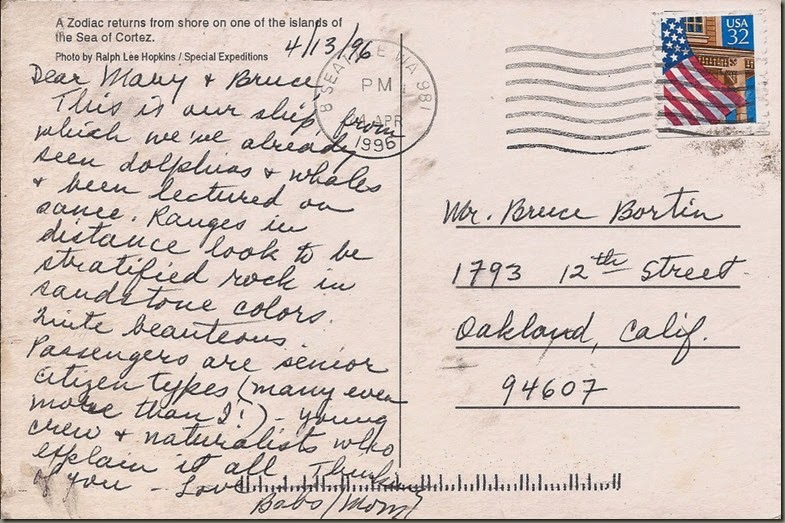 A Zodiac returns from shore on one of the islands of
the Sea of Cortez.
Photo by Ralph Lee Hopkins / Special Expeditions
4/13/96
Dear Mary & Bruce
This is our ship from
which we've already
seen dolphins & whales
& been lectured on
same. Ranges in
distance look to be
stratified rock in
sandstone colors.
Quite beauteous.
Passengers are senior
citizen types (many even
more than I!) - young
crew & naturalists who
explain it all Thinking
of you - Love
Babs/Mom
SEATTLE WA 981
PM
APR
1996
USA
32
Mr. Bruce Bortin
1793 12th Street
Oakland, Calif.
94607